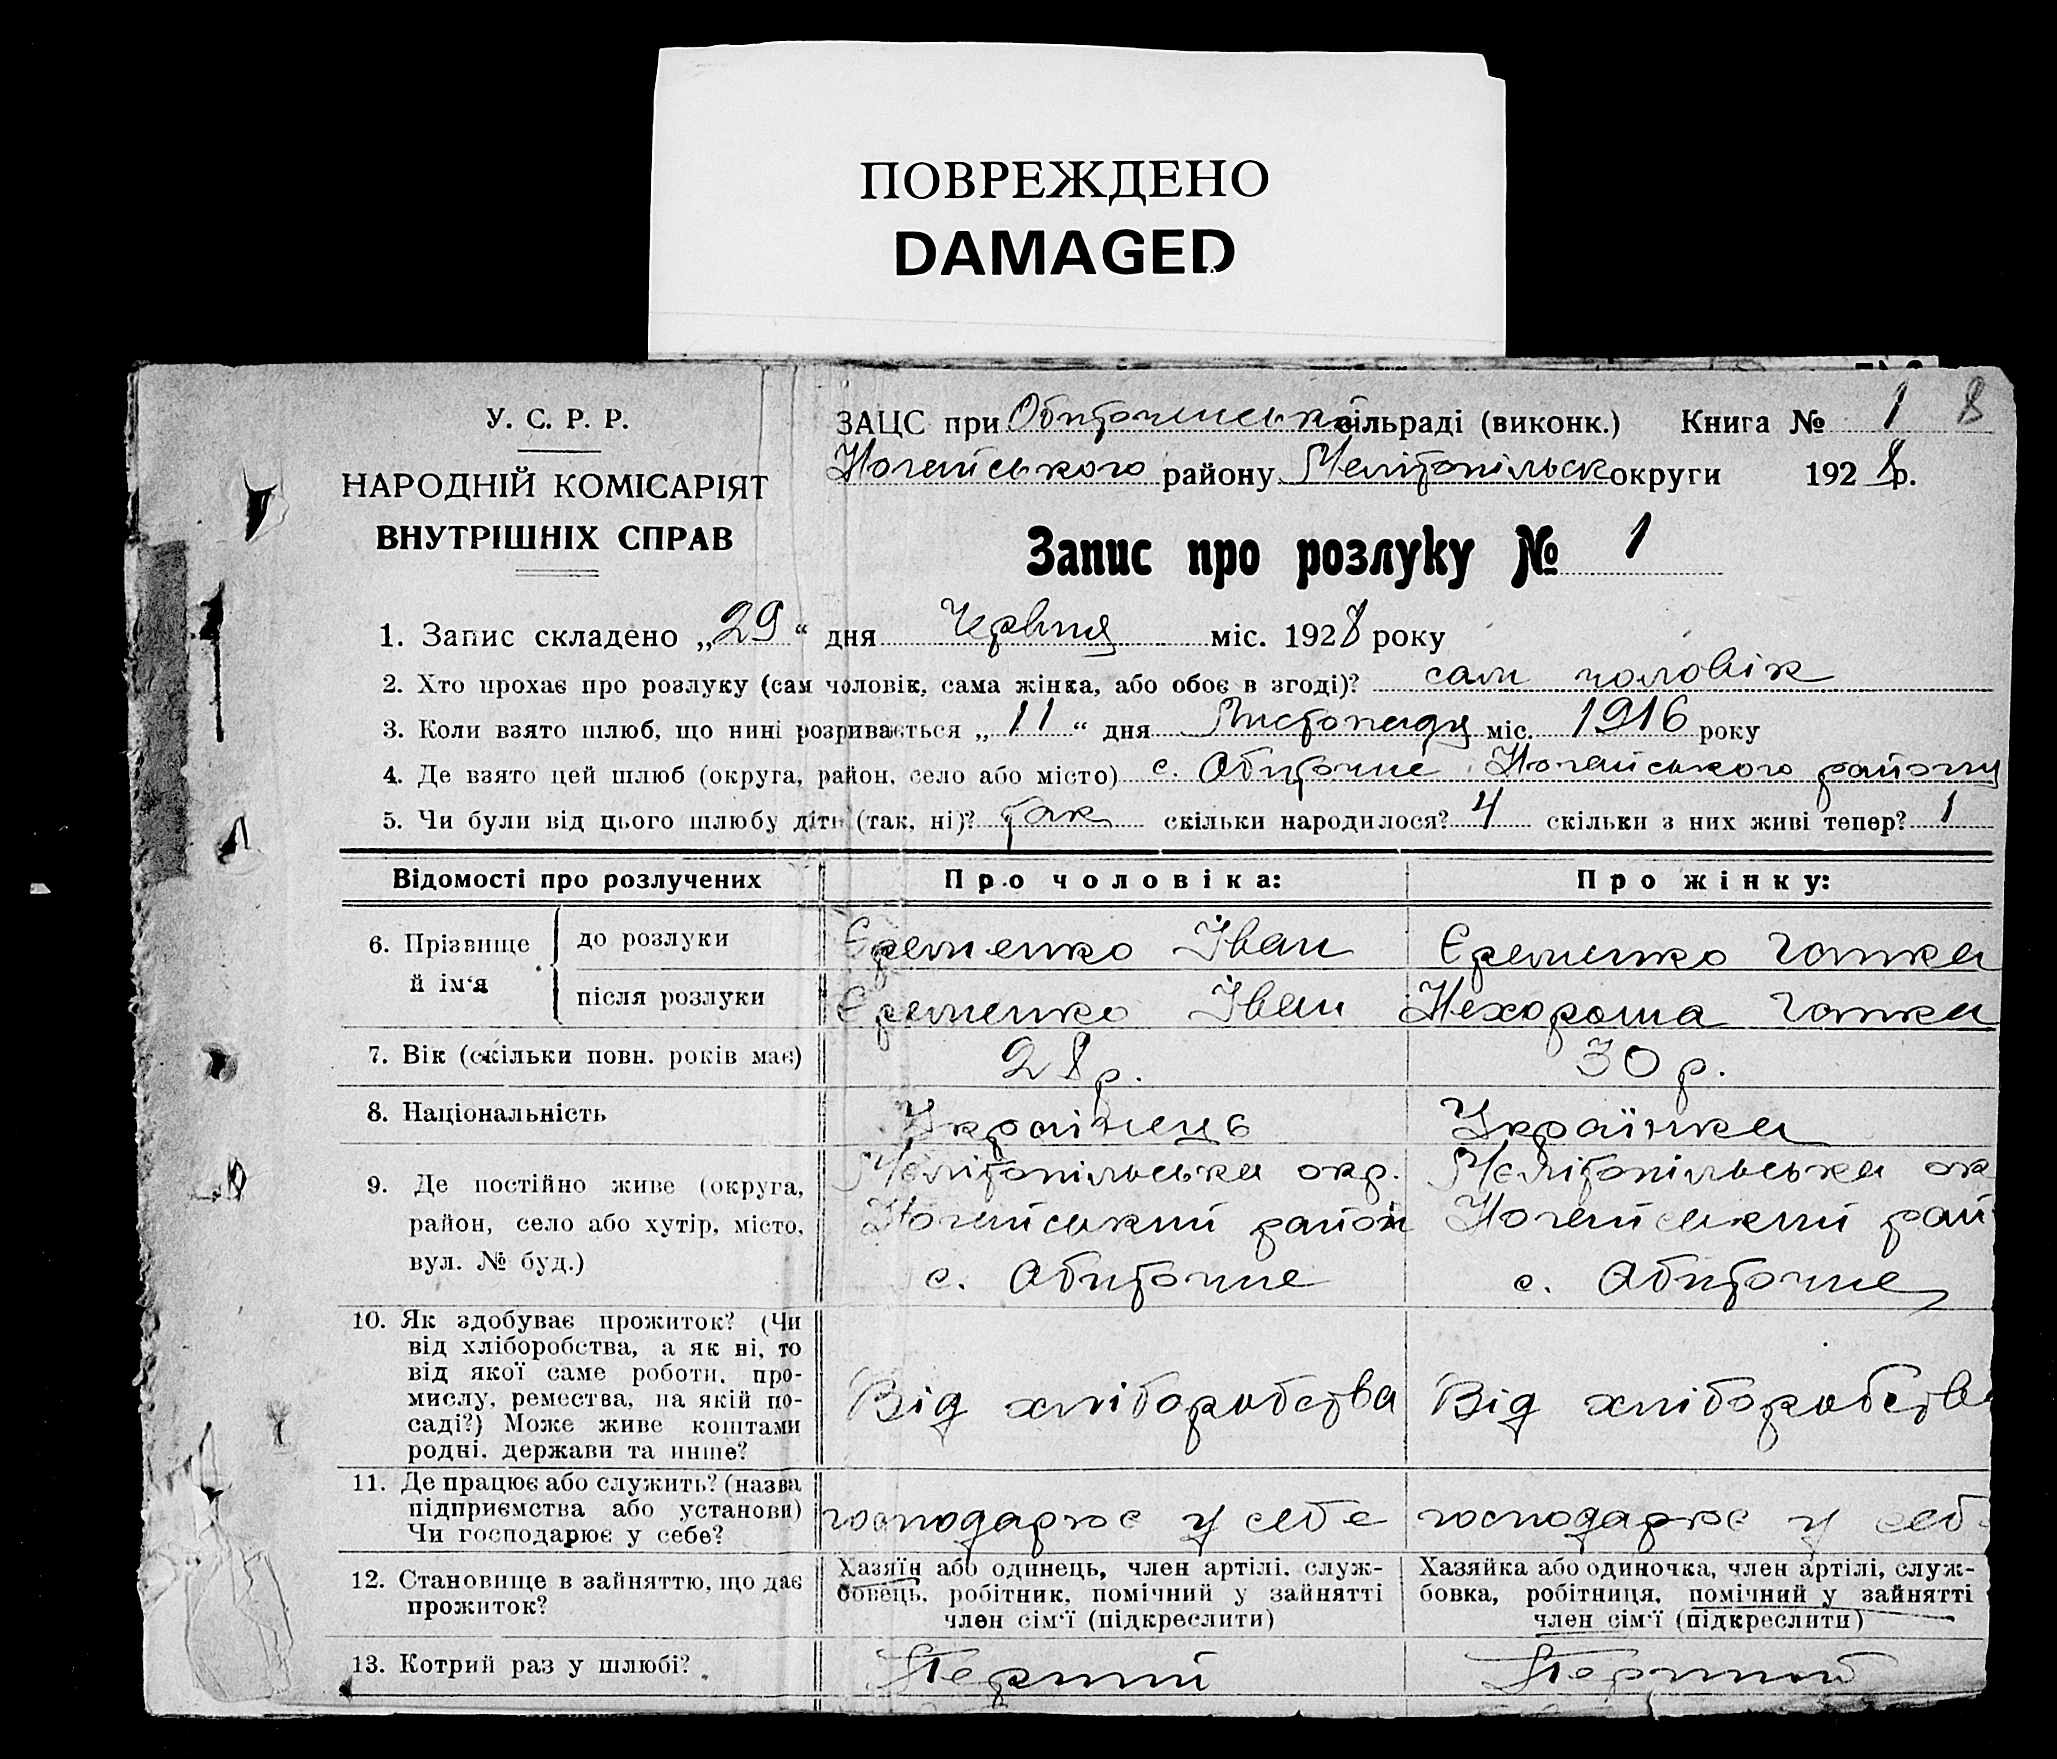 ПОВРЕЖДЕНО
DAMAGED
У. С. Р. Р.
НАРОДНІЙ КОМІСАРІЯТ
ВНУТРІШНІХ СПРАВ
ЗАЦС при Обиточенські сільраді (виконк.) Книга № 1 8
Ногайського району Мелітопільск округи 1928 р.
Запис про розлуку № 1
1. Запис складено „29“ дня Червня міс. 1928 року
2. Хто прохає про розлуку (сам чоловік, сама жінка, або обоє в згоді)? сам чоловік
3. Коли взято шлюб, що нині розривається „11“ дня Листопада міс. 1916 року
4. Де взято цей шлюб (округа, район, село або місто) с. Обиточне Ногайського району
5. Чи були від цього шлюбу діти (так, ні)? так скільки народилося? 4 скільки з них живі тепер? 1
Відомості про розлучених Про чоловіка: Про жінку:
6. Прізвище й ім‘я
до розлуки Єременко Іван Єременко Гапка
після розлуки Єременко Іван Нехороша Гапка
7. Вік (скільки повн. років має) 28 р. 30 р.
8. Національність Українець Українка
9. Де постійно живе (округа,
район, село або хутір, місто,
вул. № буд.)
Мелітопільська окр.
Ногайський район
с. Обиточне
Мелітопільська ок
Ногайський рай
с. Обиточне
10. Як здобуває прожиток? (Чи
від хліборобства, а як ні, то
від якої саме роботи, про-
мислу, ремества, на якій по-
саді?) Може живе коштами
родні, держави та инше?
Від хліборобства
Від хліборобства
11. Де працює або служить? (назва
підприємства або установи)
Чи господарює у себе?
господарює у себе
господарює у себ
12. Становище в зайняттю, що дає
прожиток?
Хазяїн або одинець, член артілі, служ-
бовець, робітник, помічний у зайнятті
член сім‘ї (підкреслити)
Хазяйка або одиночка, член артілі, служ-
бовка, робітниця, помічний у зайнятті
член сім‘ї (підкреслити)
13. Котрий раз у шлюбі? Перший Перший